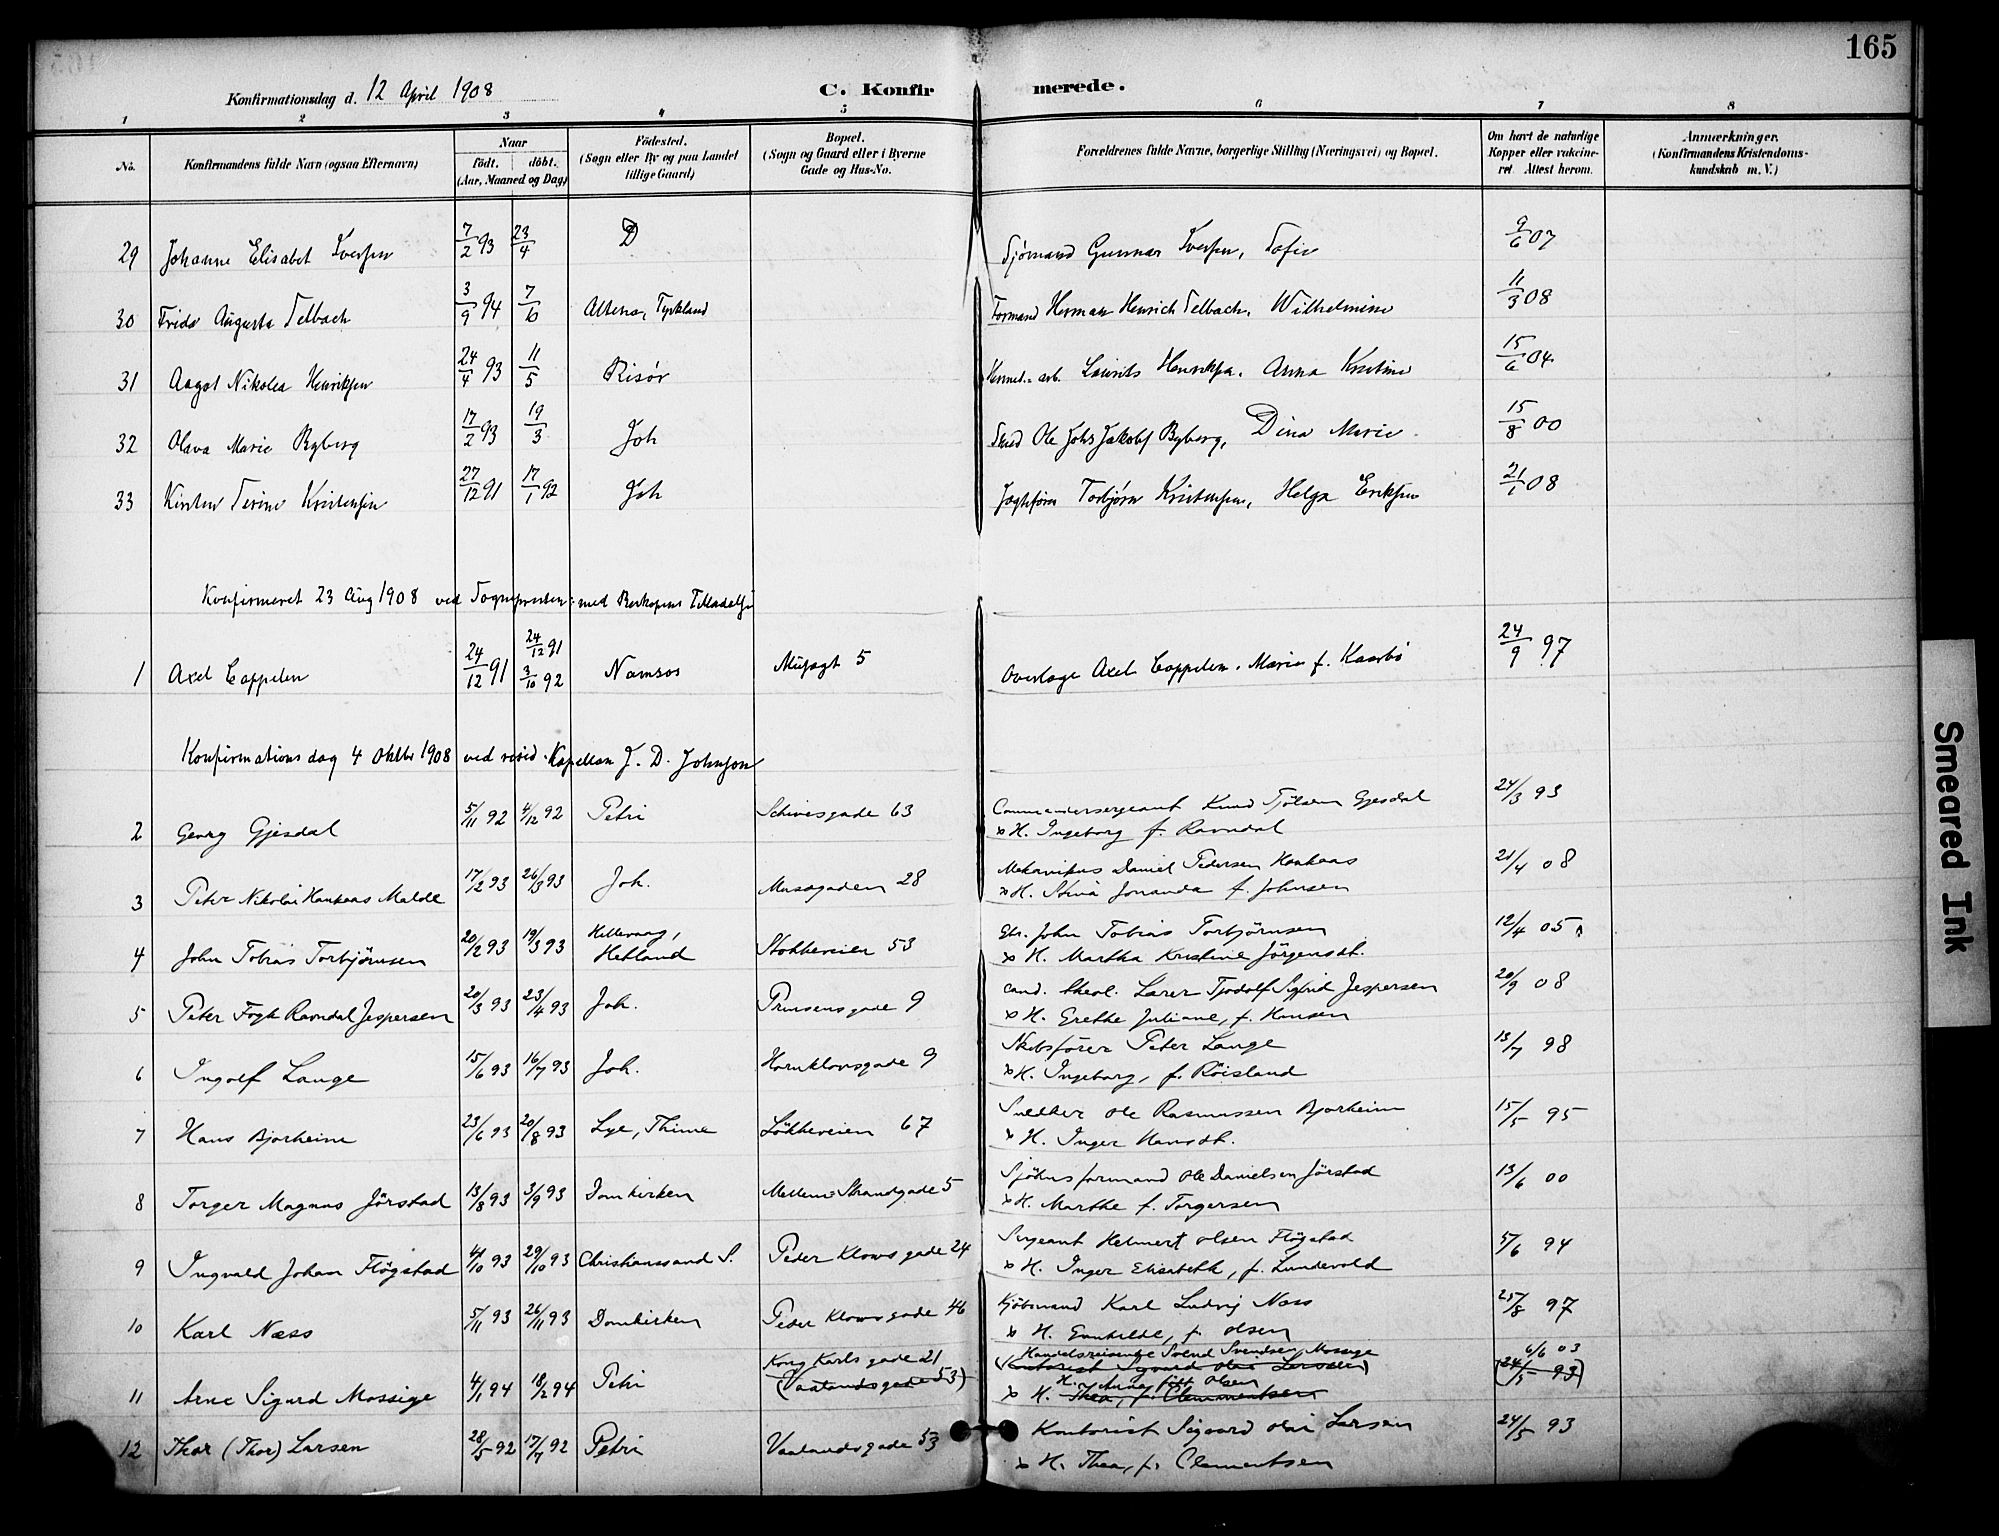 165
Konfirmationsdag d. 12 April 1908
C. Konfirmerede.
1 2 3 4 5 6 7 8
No.
Konfirmandens fulde Navn (ogsaa Efternavn)
Naar
født. døbt.
(Aar, Maaned og Dag)
Fødested.
(Sogn eller By og paa Landet
tillige Gaard)
Bopæl.
(Sogn og Gaard eller i Byerne
Gade og Hus-No.
Forældrenes fulde Navne, borgerlige Stilling (Næringsvei) og Bopæl.
Om havt de naturlige
Kopper eller vakcine-
ret. Attest herom.
Anmærkninger.
(Konfirmandens Kristendoms-
kundskab m. V.)
29 Johanne Elisabet Iversen 7/2 93 23/4 D Sjømand Gunnar Iversen, Sofie 9/6 07
30 Frida Augusta Selbach 3/9 94 7/10 Altena, Tyskland Formand Herman Henrich Selbach, Wilhelmine 11/3 08
31 Aagot Nikolea Henriksen 24/4 93 11/5 Risør Hermet.arb. Laurits Henriksen, Anna Kristine 15/6 04
32 Olava Marie Byberg 17/2 93 19/3 Joh Ole Johs Jakobs Byberg, Dina Marie 15/8 00
33 Kirsten Serine Kristensen 27/12 91 17/1 92 Joh Jagtefører Torbjørn Kristensen, Helga Eriksen 21/1 08
Konfirmeret 23 Aug 1908 ved Sognepresten med Biskopens Tilladelse
1 Axel Cappelen 24/12 91 24/12 91 3/10 92 Namsos Musegt 5 Overlæge Axel Cappelen, Marie f. Kaarbø 24/9 97
Konfirmationsdag 4 Oktbr 1908 ved resid. Kapellan J. D. Johnson
2 Georg Gjesdal 5/11 92 4/12 92 Petri Schivesgade 63 Commandersergeant Knud Gjesdal
& H. Ingeborg f. Ravndal 24/3 93
3 Peter Nikolai Haahaas Malde 17/2 93 26/3 93 Joh. Musegaden 28 Mekanikus Daniel Pedersen Haahaas
& H. Jonanda f. Johnsen 21/4 08
4 John Tobias Torbjörnsen 20/2 93 19/3 93 Hellevaag,
Hetland Stokkeveien 53 John Tobias Torbjörnsen
& H. Martha Kristine Jörgensdt. 12/4 05
5 Peter Fogh Ravndal Jespersen 20/3 93 23/4 93 Joh. Prinsensgade 9 cand. theol. Lærer Tjodolf Sigfrid Jespersen
& H. Grethe Juliane, f. Hansen 20/9 08
6 Ingolf Lange 15/6 93 16/7 93 Joh. Hornklovsgade 9 Skibsförer Peter Lange
& H. Ingeborg, f. Röisland 13/7 98
7 Hans Bjorheim 23/6 93 20/8 93 Lye, Thime Lökkeveien 67 Snedker Ole Rasmussen Bjorheim
& H. Inger Hansdt. 15/5 95
8 Torger Magnus Jörstad 13/8 93 3/9 93 Domkirken Mellem Strandgade 5 Sjöhusformand Ole Danielsen Jörstad
& H. Marthe f. Torgersen 13/6 00
9 Ingvald Johan Flögstad 4/10 93 29/10 93 Christianssand S. Peder Klowsgade 24 Sergeant Helmert Olsen Flögstad
& H. Inger Elisabeth, f. Lundevold 5/6 94
10 Karl Næss 5/11 93 26/11 93 Domkirken Peder Klowsgade 46 Kjöbmand Karl Ludvig Næss
& H. Gunhilde, f. Olsen 25/8 97
11 Arne Sigurd Mossige 4/1 94 18/2 94 Petri Kong Karlsgade 21
(Vaalandsgade 53) Handelsreisende Svend Svendsen Mossige
(Kontorist Sigvard Olai Larssen)
H. Anne født Olsen
& H. Thea, f. Clementsen 6/6 03
(24/5 93)
12 Thor (Thor) Larsen 28/5 92 17/7 92 Petri Vaalandsgade 53 Kontorist Sigvard Olai Larsen
& H. Thea, f. Clementsen 24/5 93
Smeared Ink